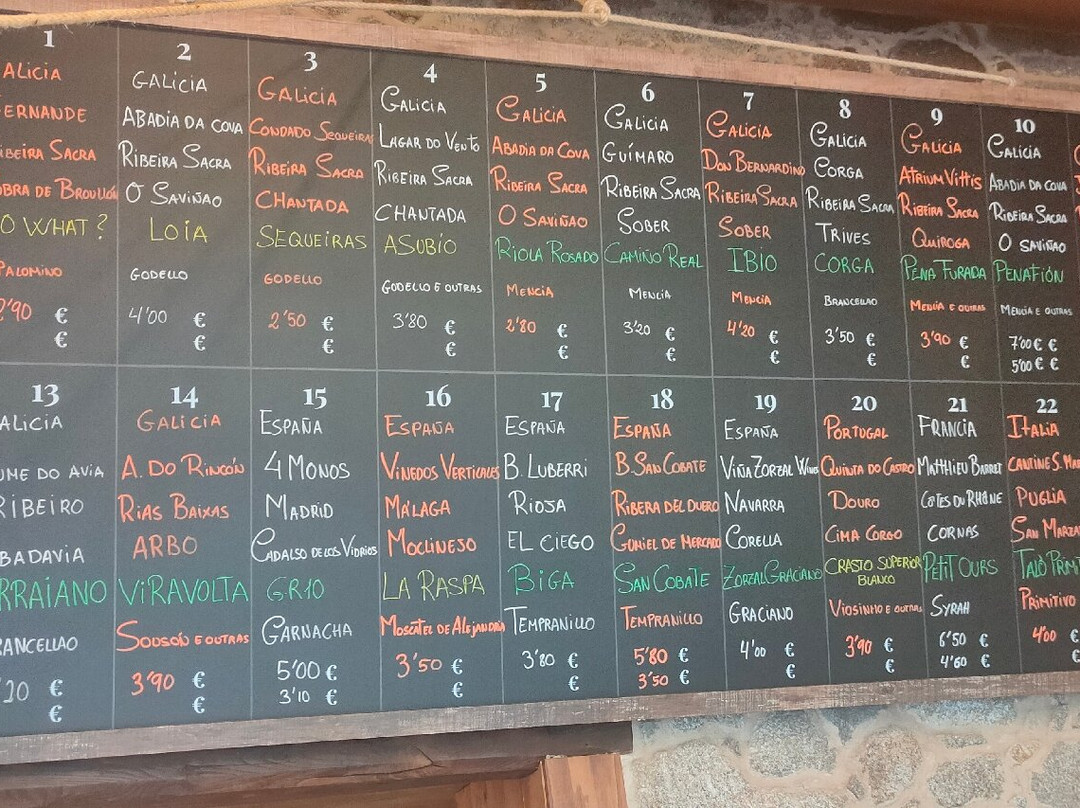 1
ALICIA
ERNANDE
IBEIRA SACRA
OBRA DE BROLLÓN
O WHAT?
PALOMINO
2'90 €
€
2
GALICIA
ABADIA DA COVA
RIBEIRA SACRA
O SAVIÑAO
LOIA
GODELLO
4'00 €
€
3
GALICIA
CONDADO SEQUEIRAS
RIBEIRA SACRA
CHANTADA
SEQUEIRAS
GODELLO
2'50 €
€
4
GALICIA
LAGAR DO VENTO
RIBEIRA SACRA
CHANTADA
ASUBÍO
GODELLO E OUTRAS
3'80 €
€
5
GALICIA
ABADIA DA COVA
RIBEIRA SACRA
O SAVIÑAO
RIOLA ROSADO
MENCIA
2'80 €
€
6
GALICIA
GUÍMARO
RIBEIRA SACRA
SOBER
CAMIÑO REAL
MENCIA
3'20 €
€
7
GALICIA
DON BERNARDINO
RIBEIRA SACRA
SOBER
IBIO
MENCIA
4'20 €
€
8
GALICIA
CORGA
RIBEIRA SACRA
TRIVES
CORGA
BRANCELLAO
3'50 €
€
9
GALICIA
ATRIUM VITTIS
RIBEIRA SACRA
QUIROGA
PENA FURADA
MENCIA E OUTRAS
3'90 €
€
10
GALICIA
ABADIA DA COVA
RIBEIRA SACRA
O SAVIÑAO
PENAFIÓN
MENCIA E OUTRAS
7'00 € €
5'00 € €
13
ALICIA
UME DO AVIA
RIBEIRO
BADAVIA
RRAIANO
RANCELLAO
'20 €
€
14
GALICIA
A. DO RINCÓN
RIAS BAIXAS
ARBO
VIRAVOLTA
SOUSÓN E OUTRAS
3'90 €
€
15
ESPAÑA
4 MONOS
MADRID
CADALSO DE LOS VIDRIOS
GR10
GARNACHA
5'00 €
3'10 €
16
ESPAÑA
VIÑEDOS VERTICALES
MÁLAGA
MOCLINEJO
LA RASPA
MOSCATEL DE ALEJANDRIA
3'50 €
€
17
ESPAÑA
B. LUBERRI
RIOJA
EL CIEGO
BIGA
TEMPRANILLO
3'80 €
€
18
ESPAÑA
B. SAN COBATE
RIBERA DEL DUERO
GUMIEL DE MERCADO
SAN COBATE
TEMPRANILLO
5'80 €
3'50 €
19
ESPAÑA
VIÑA ZORZAL WINES
NAVARRA
CORELLA
ZORZAL GRACIANO
GRACIANO
4'00 €
€
20
PORTUGAL
QUINTA DO CASTRO
DOURO
CIMA CORGO
CRASTO SUPERIOR
BLANCO
VIOSINHO E OUTRAS
3'90 €
€
21
FRANCIA
MATTHIEU BARRET
CÔTES DU RHÔNE
CORNAS
PETIT OURS
SYRAH
6'50 €
4'60 €
22
ITALIA
CANTINE S. MA
PUGLIA
SAN MARZA
TALÒ PRIMI
PRIMITIVO
4'00 €
€